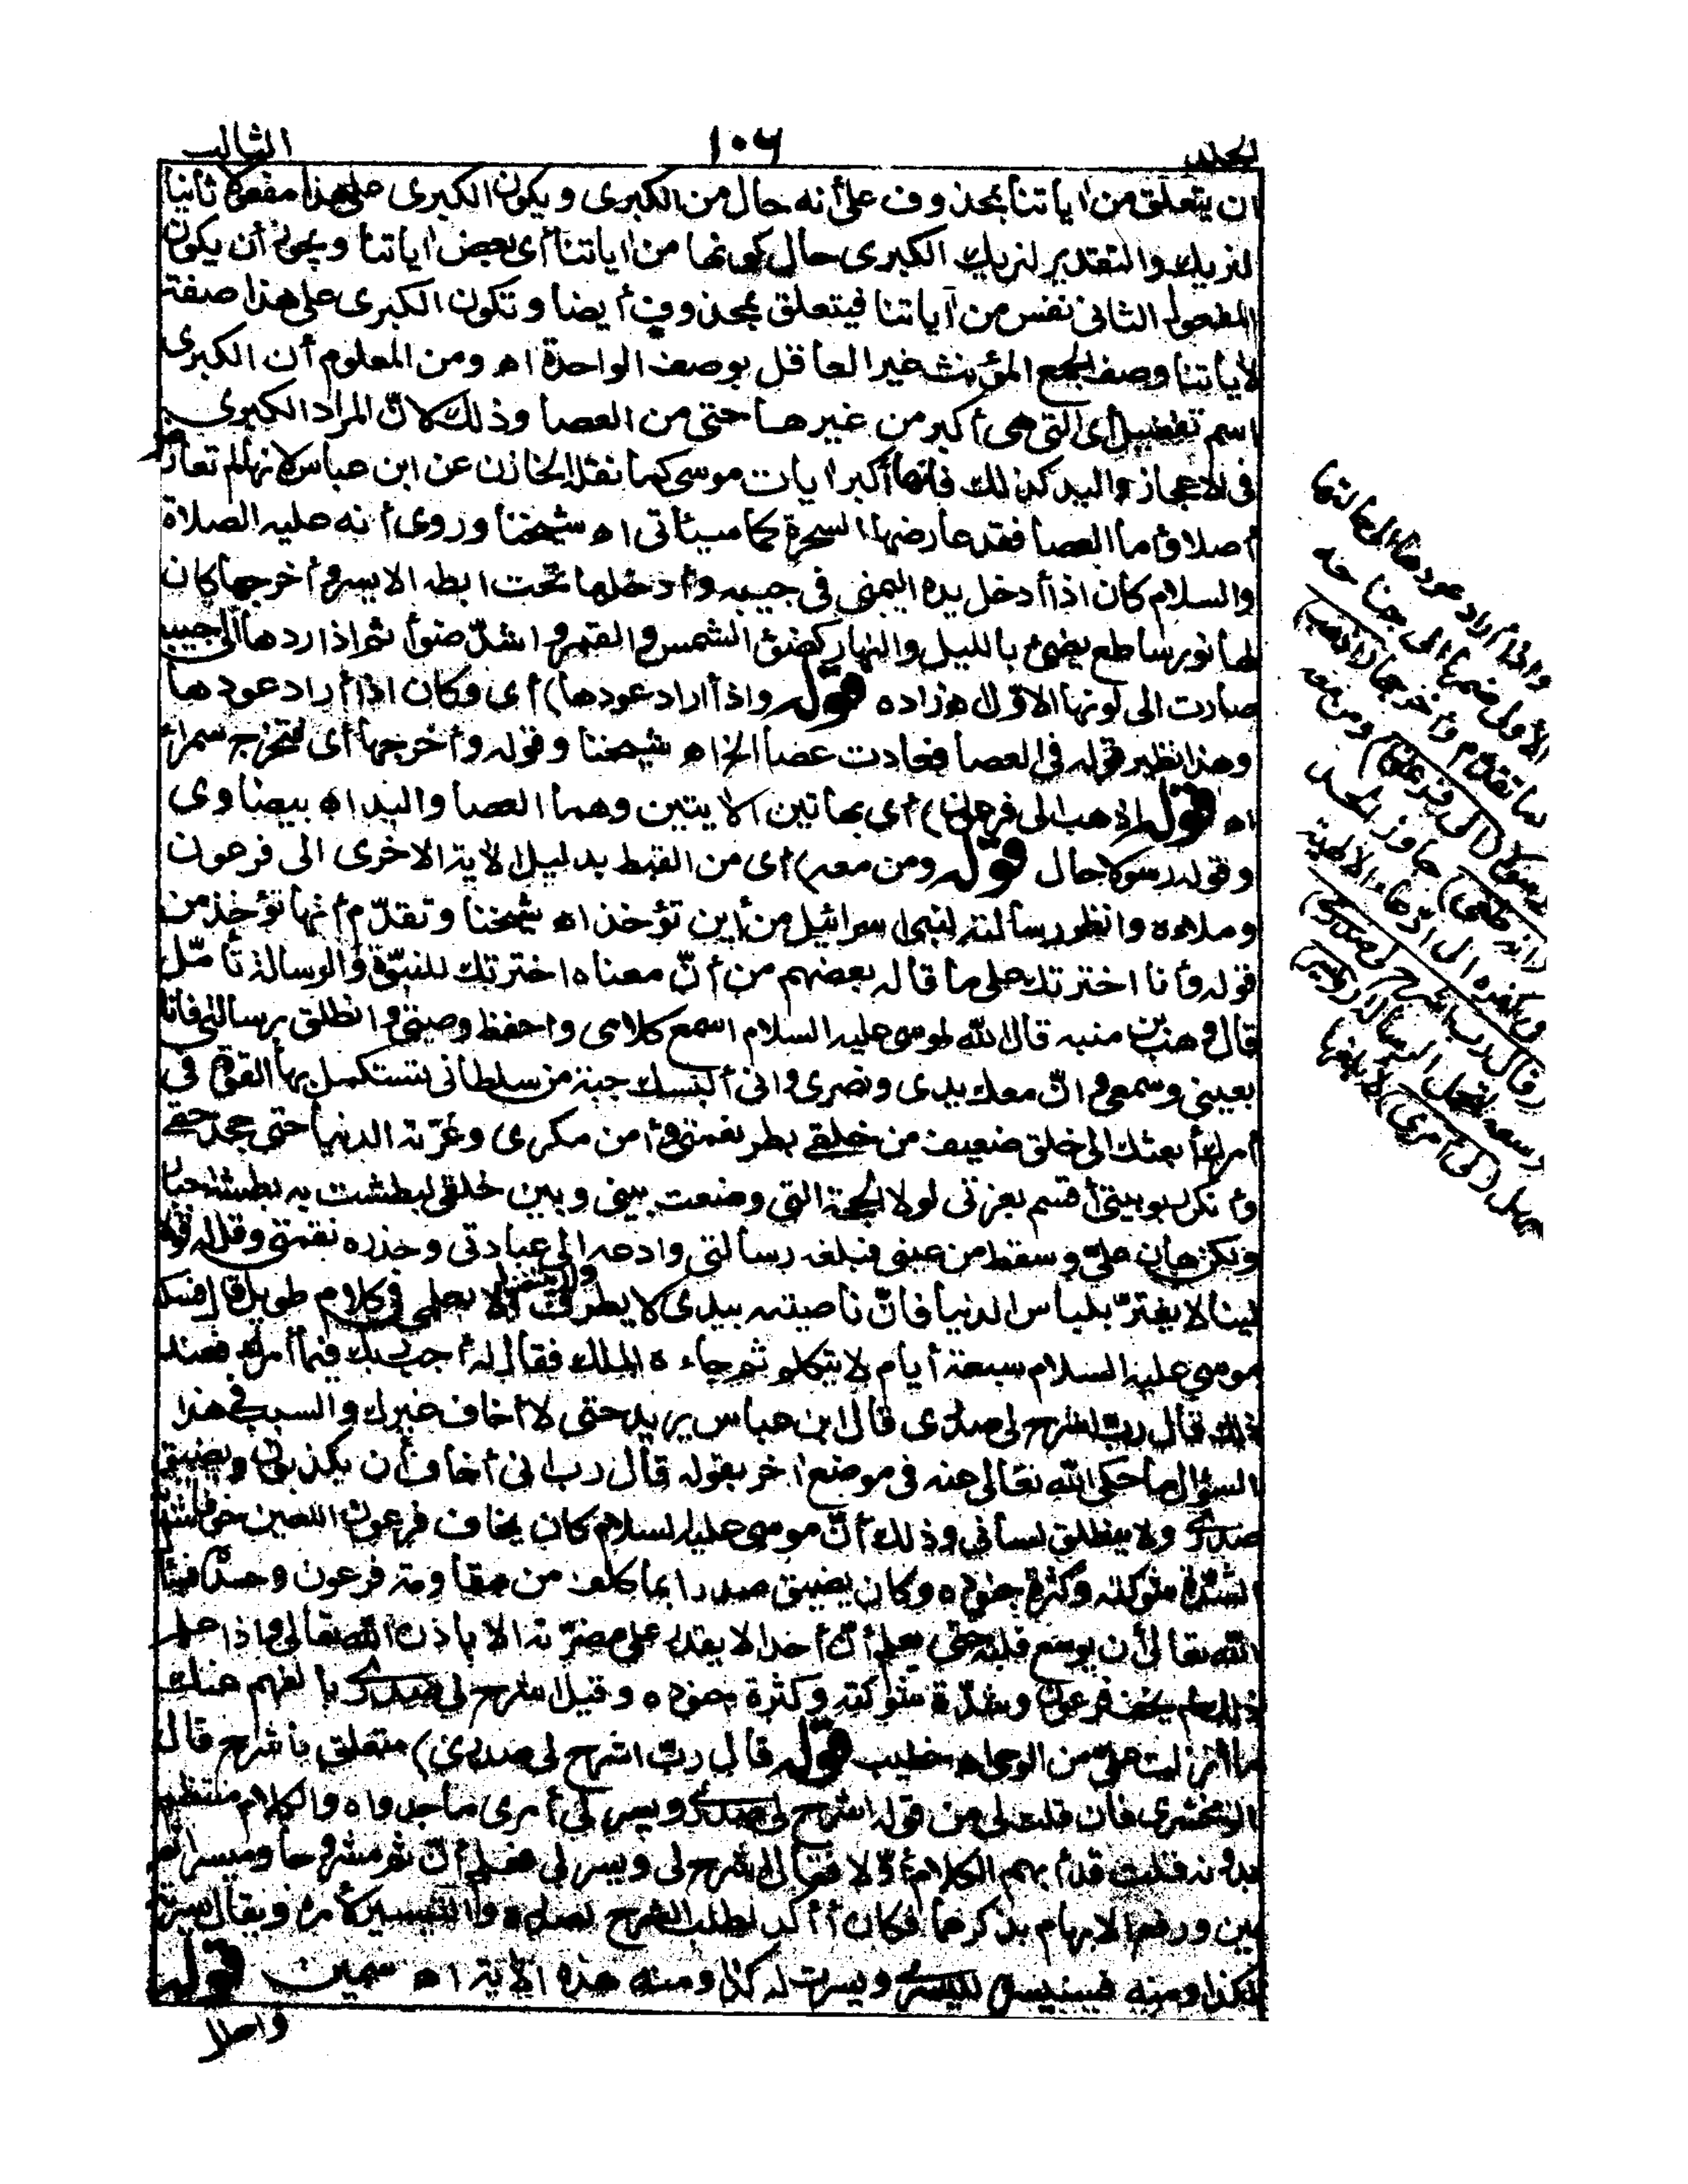 الجلد
١٠٦
الثالث
ان يتعلق من اياتنا بمحذوف على أنه حال من الكبرى ويكون الكبرى على هذا مفعولا ثانيا
لنريك والتقدير لنريك الكبرى حال كونها من اياتنا أى بعض اياتنا ويجوز أن يكون
المفعول الثانى نفس من آياتنا فيتعلق بمحذوف أيضا وتكون الكبرى على هذا صفة
لأياتنا وصف الجمع المؤنث غير العاقل بوصف الواحدة اه ومن المعلوم أن الكبرى
اسم تفضيل أى التى هى أكبر من غيرها حتى من العصا وذلك لان المراد الكبرى
فى الاعجاز واليد كذلك فانها أكبر ايات موسى كما نقل الخازن عن ابن عباس لانها لم تعارض
أصلا وأما العصا فقد عارضها السحرة كما سيأتى اه شيخنا وروى أنه عليه الصلاة
والسلام كان اذا أدخل يده اليمنى فى جيبه وأدخلها تحت ابطه الايسر وأخرجها كان
لها نور ساطع يضئ بالليل والنهار كضوء الشمس والقمر واشدّ ضوأ ثم اذا ردها الى جيبه
صارت الى لونها الاوّل اه زاده قوله واذا أراد عودها) أى وكان اذا أراد عودها
وهذا نظير قوله فى العصا فعادت عصا الخ اه شيخنا وقوله وأخرجها أى لتخرج سمراء
اه قوله اذهب الى فرعون) أى بهاتين الايتين وهما العصا واليد اه بيضاوى
وقوله رسولا حال قوله ومن معه) أى من القبط بدليل الأية الاخرى الى فرعون
وملاءه وانظر رسالته لبنى اسرائيل من أين تؤخذ اه شيخنا وتقدّم أنها تؤخذ من
قوله وأنا اخترتك على ما قاله بعضهم من أنّ معناه اخترتك للنبوّة والرسالة تأمّل
قال وهب بن منبه قال الله لموسى عليه السلام اسمع كلامى واحفظ وصيتى وانطلق برسالتى فانك
بعينى وسمعى وانّ معك يدى ونصرى وانى ألبسك جبة من سلطانى تستكمل بها القوة فى
أمرك أبعثك الى خلق ضعيف من خلقى بطر نعمتى وأمن مكرى وغرّته الدنيا حتى جحد حقى
وأنكر ربوبيتى أقسم بعزتى لولا الحجة التى وضعت بينى وبين خلقى لبطشت به بطشة جبار
ولكن هان علىّ وسقط من عينى فبلغه رسالتى وادعه الى عبادتى وحذره نقمتى وقل له قولا
لينا لا يغترّ بلباس الدنيا فانّ ناصيته بيدى لا يطرف ولا يتنفس الا بعلمى فى كلام طويل قال فسكت
موسى عليه السلام سبعة أيام لا يتكلم ثم جاءه الملك فقال له أجب ربك فيما أمرك فعند
ذلك قال رب اشرح لى صدرى قال ابن عباس يريد حتى لا أخاف غيرك والسبب فى هذا
السؤال ما حكى الله تعالى عنه فى موضع اخر بقوله قال رب انى أخاف أن يكذبون ويضيق
صدرى ولا ينطلق لسانى وذلك أنّ موسى عليه السلام كان يخاف فرعون اللعين خوفا شديدا
لشدّة شوكته وكثرة جنوده وكان يضيق صدرا بما كلف من مقاومة فرعون وحده فسأل
الله تعالى أن يوسع قلبه حتى يعلم أنّ أحدا لا يقدر على مضرّته الا باذن الله تعالى واذا علم
ذلك لم يخف فرعون وشدّة شوكته وكثرة جنوده وقيل اشرح لى صدرى بالفهم عنك
ما أنزلت علىّ من الوحى اه خطيب قوله قال ربّ اشرح لى صدرى) متعلق باشرح قال
الزمخشرى فان قلت لى من قوله اشرح لى صدرى ويسر لى أمرى ما جدواه والكلام منتظم
بدونه قلت قد أبهم الكلام أوّلا فقال اشرح لى ويسر لى فعلم أنّ ثم مشروحا وميسرا ثم
بين ورفع الابهام بذكرهما فكان أأكد لطلب الشرح لصدره والتيسير لأمره ويقال يسرته
لكذا ومنه فسنيسره لليسرى ويسرت له كذا ومنه هذه الأية اه سمين قوله
واحلل
واذا أراد عودها الى حالتها
الأولى ضمها الى جناحه
كما تقدّم وأخرجها (اذهب)
رسولا (الى فرعون) ومن معه
(انه طغى) جاوز الحد
فى كفره الى ادّعاء الالهية
(قال رب اشرح لى صدرى)
وسعه لتحمل الرسالة (ويسر)
سهل (لى أمرى) لأبلغها